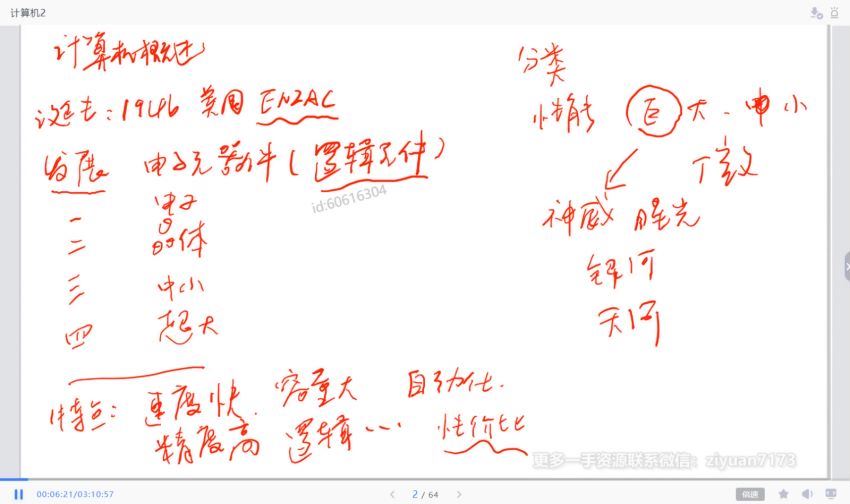 计算机2
计算机概述
诞生：1946 美国 ENIAC
发展 电子元器件（逻辑元件）
一 电子
二 晶体
三 中小
四 超大
特点：速度快. 容量大 自动化.
精度高 逻辑... 性价比
分类
性能 巨 大、中 小
微
神威 曙光
银河
天河
id:60616304
更多一手资源联系微信：ziyuan7173
00:06:21/03:10:57
2 / 64
倍速